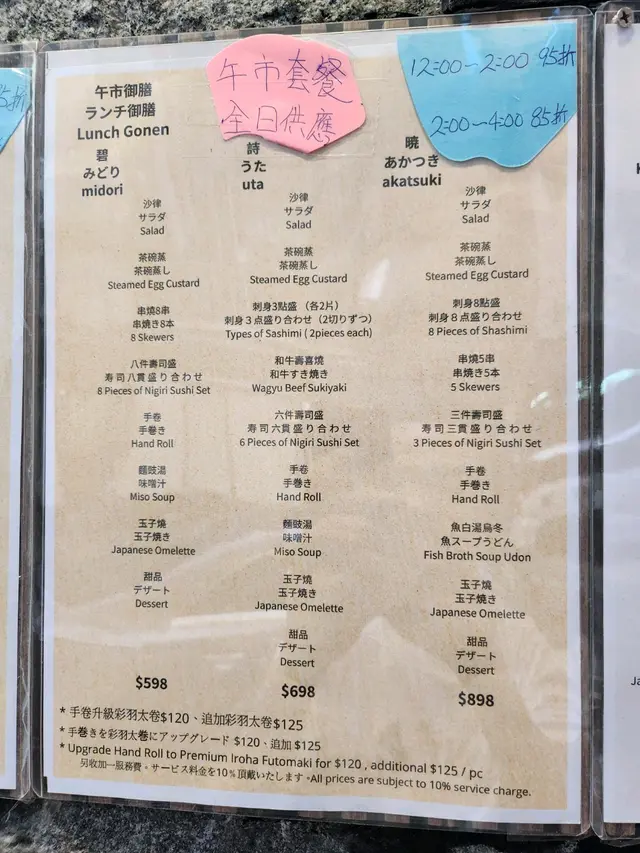 午市套餐
全日供應
12:00-2:00 95折
2:00-4:00 85折
5折
午市御膳
ランチ御膳
Lunch Gonen
碧
みどり
midori
沙律
サラダ
Salad
茶碗蒸
茶碗蒸し
Steamed Egg Custard
串燒8串
串焼き8本
8 Skewers
八件壽司盛
寿司八貫盛り合わせ
8 Pieces of Nigiri Sushi Set
手卷
手巻き
Hand Roll
麵豉湯
味噌汁
Miso Soup
玉子燒
玉子焼き
Japanese Omelette
甜品
デザート
Dessert
$598
詩
うた
uta
沙律
サラダ
Salad
茶碗蒸
茶碗蒸し
Steamed Egg Custard
刺身3點盛 （各2片）
刺身３点盛り合わせ（2切りずつ）
Types of Sashimi ( 2pieces each)
和牛壽喜燒
和牛すき焼き
Wagyu Beef Sukiyaki
六件壽司盛
寿司六貫盛り合わせ
6 Pieces of Nigiri Sushi Set
手卷
手巻き
Hand Roll
麵豉湯
味噌汁
Miso Soup
玉子燒
玉子焼き
Japanese Omelette
甜品
デザート
Dessert
$698
暁
あかつき
akatsuki
沙律
サラダ
Salad
茶碗蒸
茶碗蒸し
Steamed Egg Custard
刺身8點盛
刺身８点盛り合わせ
8 Pieces of Shashimi
串燒5串
串焼き5本
5 Skewers
三件壽司盛
寿司三貫盛り合わせ
3 Pieces of Nigiri Sushi Set
手卷
手巻き
Hand Roll
魚白湯烏冬
魚スープうどん
Fish Broth Soup Udon
玉子燒
玉子焼き
Japanese Omelette
甜品
デザート
Dessert
$898
* 手卷升級彩羽太卷$120、追加彩羽太卷$125
* 手巻きを彩羽太巻にアップグレード $120、追加 $125
* Upgrade Hand Roll to Premium Iroha Futomaki for $120 , additional $125 / pc
另收加一服務費。サービス料金を10%頂戴いたします。All prices are subject to 10% service charge.